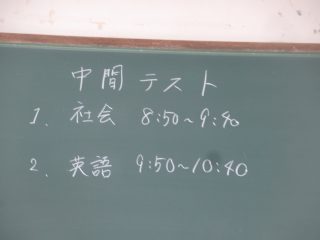 中間テスト
1. 社会 8:50~9:40
2. 英語 9:50~10:40